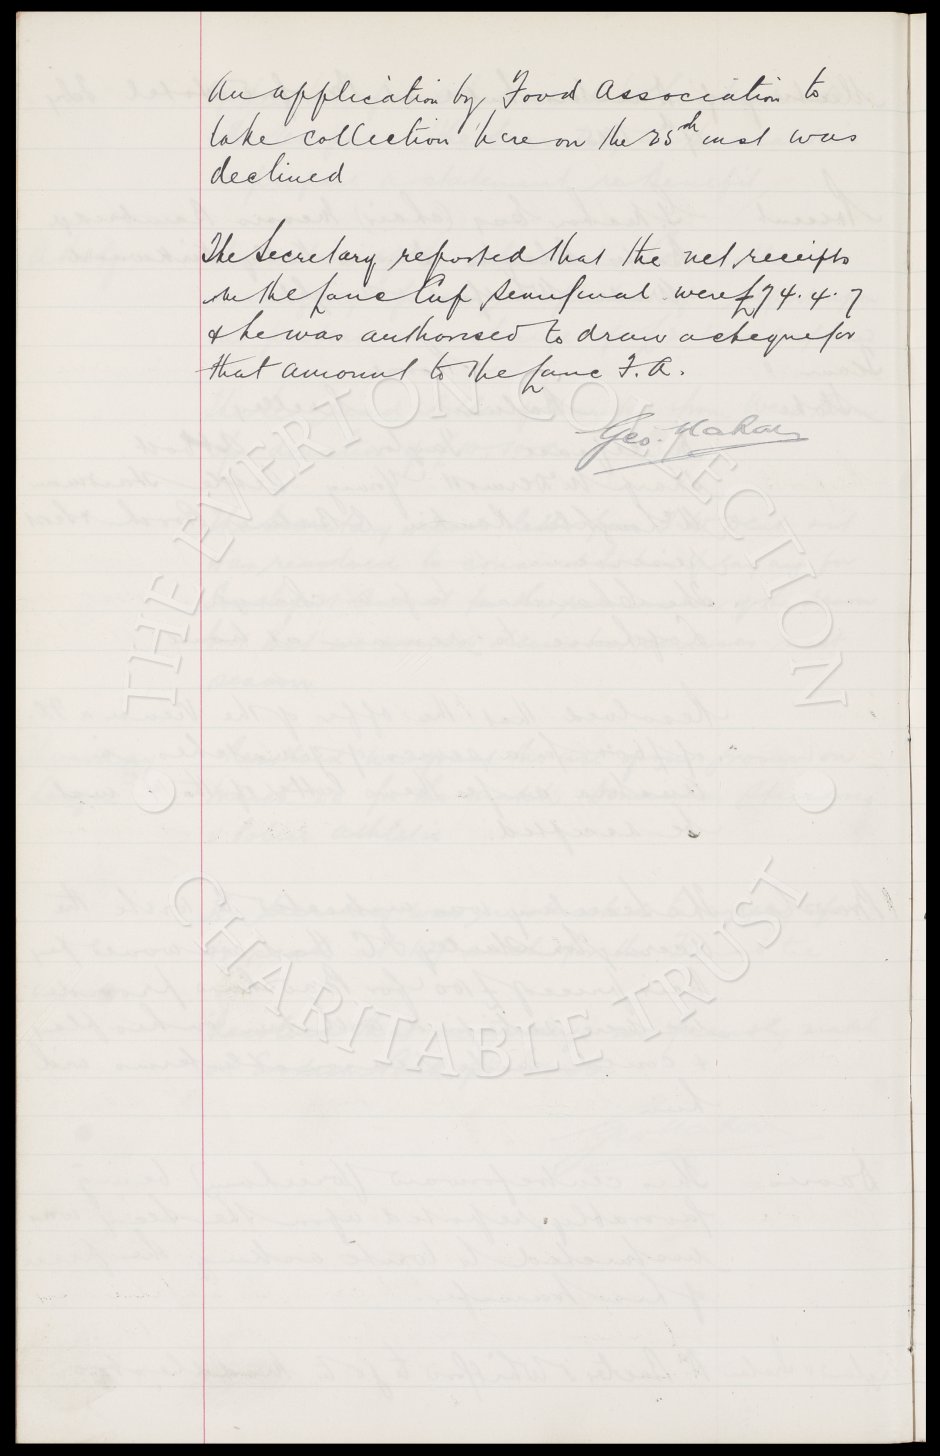 An application by Food Association to
take collection here on the 25th inst was
declined
The Secretary reported that the net receipts
in the Lanc Cup Semifinal were £74.4.7
& he was authorised to draw a cheque for
that amount to the Lanc F.A.
Geo. Mahon
THE EVERTON COLLECTION
CHARITABLE TRUST